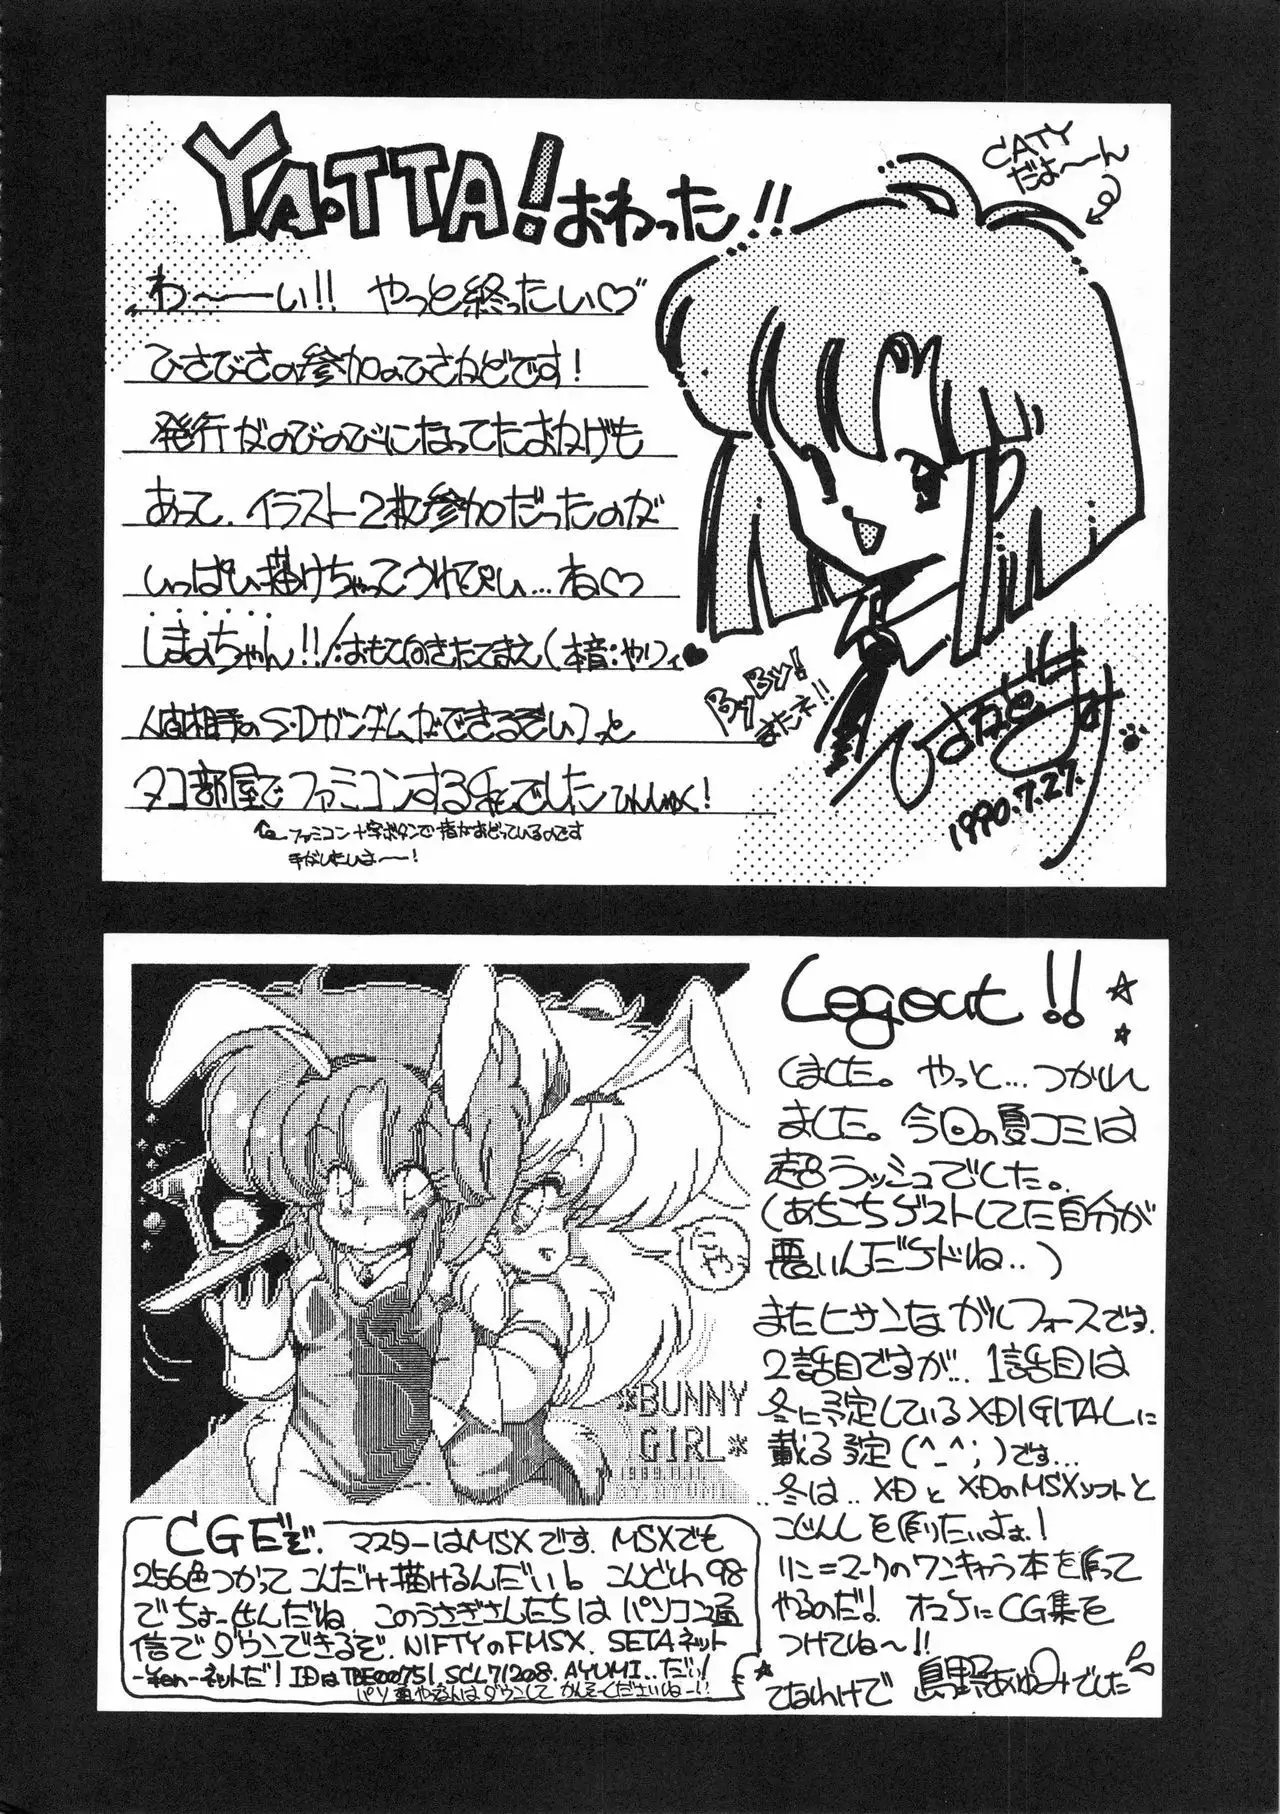 YA.TTA!おわった!!
CATY
だよ〜〜ん
わ〜ーい!! やっと終ったい♡
ひさびさの参加のひさねどです!
発行がのびのびになってたおかげも
あって、イラスト2枚参加だったのが
いっぱい描けちゃってうれぴい…ね♡
しまのちゃん!!/:おもて向きたてまえ(本音:やりィ♥
人間相手のS・Dガンダムができるぞい)っと
タコ部屋でファミコンする
でした
ファミコン十字ボタンで指がおどっているのです
ByBy!
またネ!!
1990.7.27.
Logout!!
しました。やっと…つかれ
ました。今回の夏コミは
超ラッシュでした。
(あちこちゲストしてた自分が
悪いんだケドね..)
またヒサンなガルフォースです.
2話目ですが... 1話目は
冬に予定しているXDIGITALに
載る予定(^_^;)です...
..冬は..XDとXDのMSXソフトと
こじんしを作りたいよぉ!
リニ=マークのワンキャラ本を作って
やるのだよ! オマケにCG集を
つけてね〜!!
てなわけで 島野あゆみでした
*BUNNY
GIRL*
1989.11.11.
BY.AYUMI
CGEぞ. マスターはMSXです. MSXでも
256色つかってこんだけ描けるんだい! こんどわ98
でちょーせんだね このうさぎさんたちは パソコン通
信でダウンできるぞ. NIFTYのFMSX. SETAネット
-ネットだ! IDはTBE00751. SCL71208. AYUMI..だい!
パソ通やるさんはダウンして かんそーくださいねー!!